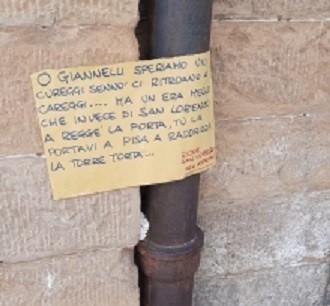 O GIANNELLI SPERIAMO 'UN
CUREGGI SENNO' CI RITROANO A
CAREGGI.... MA UN ERA MEGLIO
CHE INVECE DI SAN LORENZO
A REGGE' LA PORTA, TU LA
PORTAVI A PISA A RADDRIZZA'
LA TORRE TORTA...